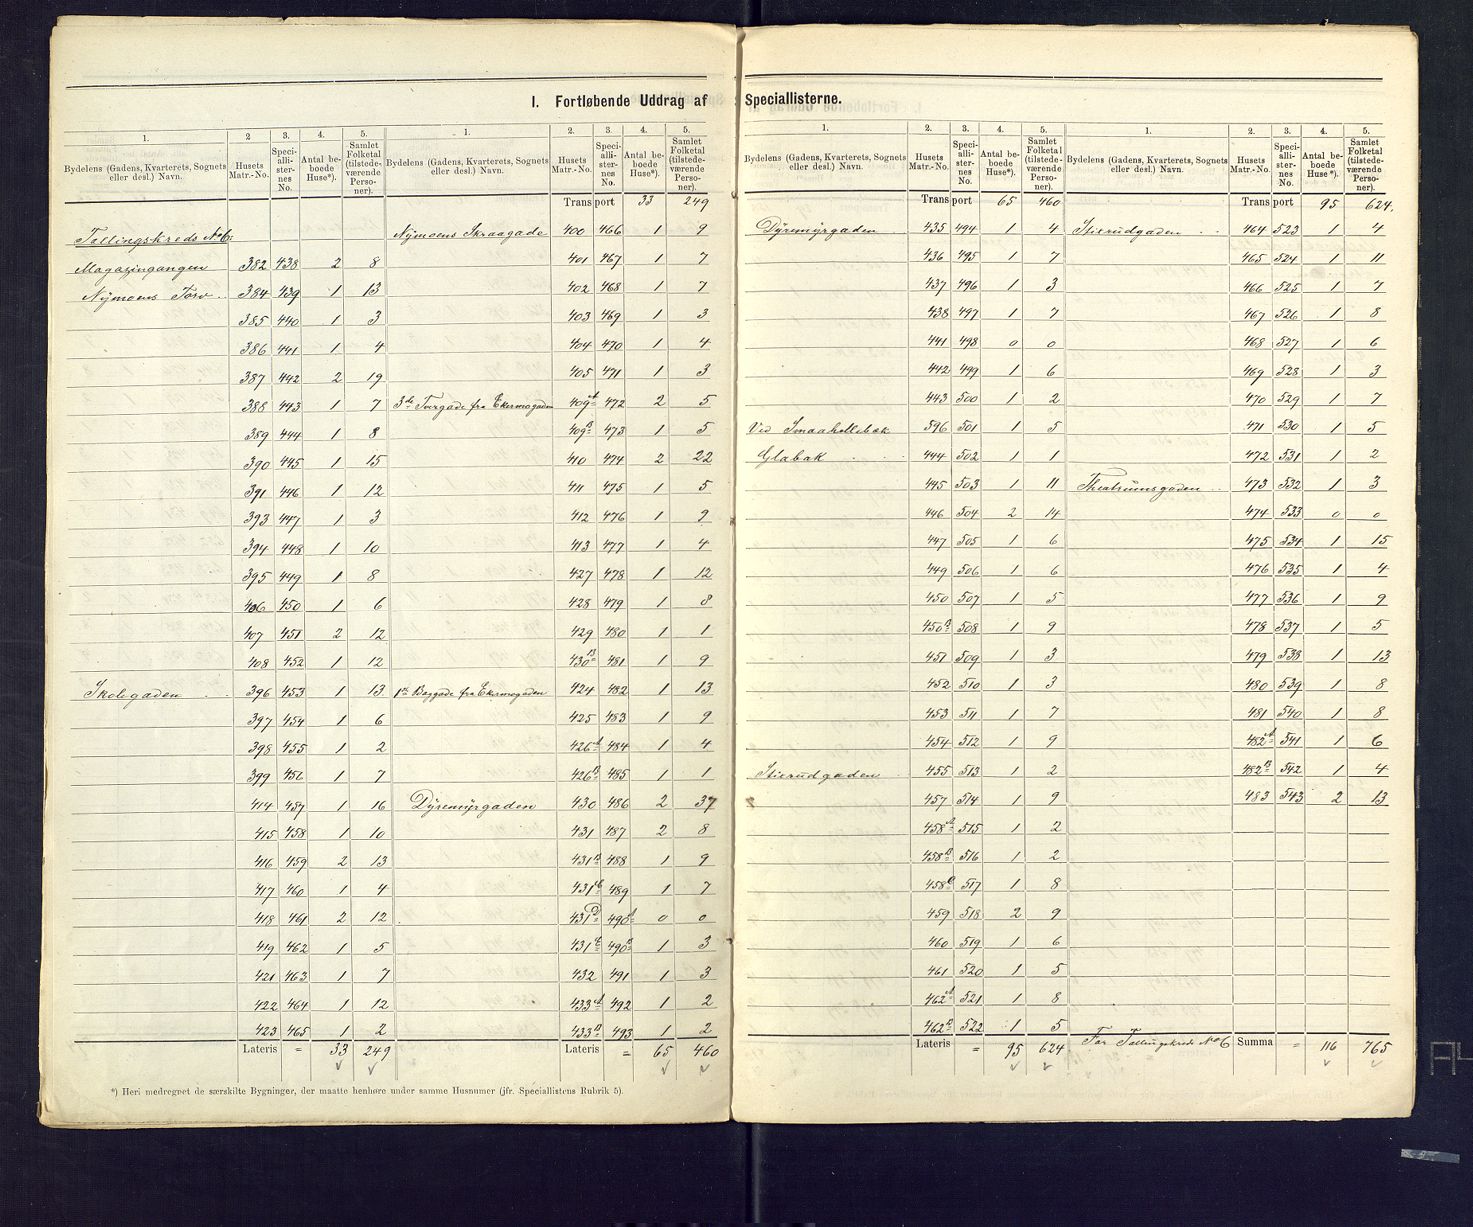 I. Fortløbende Uddrag af Speciallisterne.
1. 2 3. 4. 5. 1. 2. 3. 4. 5.
Bydelens (Gadens, Kvarterets, Sognets eller desl.) Navn. Husets Matr.-No. Speciallisternes No. Antal beboede Huse*). Samlet Folketal (tilstedeværende Personer). Bydelens (Gadens, Kvarterets, Sognets eller desl.) Navn. Husets Matr.-No. Speciallisternes No. Antal beboede Huse*). Samlet Folketal (tilstedeværende Personer).
Transport 33 249
Tællingskreds No 6: Nymoens Skraagade 400 466 1 9
Magazingangen 382 438 2 8 401 467 1 7
Nymoens Torv 384 439 1 13 402 468 1 7
385 440 1 3 403 469 1 3
386 441 1 4 404 470 1 4
387 442 2 19 405 471 1 3
388 443 1 7 3de Tvergade fra Ekermogaden 409A 472 2 5
389 444 1 8 409B 473 1 5
390 445 1 15 410 474 2 22
391 446 1 12 411 475 1 5
393 447 1 3 412 476 1 9
394 448 1 10 413 477 1 4
395 449 1 8 427 478 1 12
406 450 1 6 428 479 1 8
407 451 2 12 429 480 1 1
408 452 1 12 430B 481 1 9
Skolegaden 396 453 1 13 1ste Baggade fra Ekermogaden 424 482 1 13
397 454 1 6 425 483 1 9
398 455 1 2 426A 484 1 4
399 456 1 7 426B 485 1 1
414 457 1 16 Dyremyrgaden 430 486 2 37
415 458 1 10 431 487 2 8
416 459 2 13 431B 488 1 9
417 460 1 4 431C 489 1 7
418 461 2 12 431D 490A 0 0
419 462 1 5 431E 490B 1 3
421 463 1 7 432 491 1 3
422 464 1 12 433A 492 1 2
423 465 1 2 433B 493 1 2
Lateris = 33 249 Lateris = 65 460
*) Heri medregnet de særskilte Bygninger, der maatte henhøre under samme Husnumer (jfr. Speciallistens Rubrik 5).
1. 2. 3. 4. 5. 1. 2. 3. 4. 5.
Bydelens (Gadens, Kvarterets, Sognets eller desl.) Navn. Husets Matr.-No. Speciallisternes No. Antal beboede Huse*). Samlet Folketal (tilstedeværende Personer). Bydelens (Gadens, Kvarterets, Sognets eller desl.) Navn. Husets Matr.-No. Speciallisternes No. Antal beboede Huse*). Samlet Folketal (tilstedeværende Personer).
Transport 65 460 Transport 95 624.
Dyremyrgaden 435 494 1 4 Stierudgaden 464 523 1 4
436 495 1 7 465 524 1 11
437 496 1 3 466 525 1 7
438 497 1 7 467 526 1 8
441 498 0 0 468 527 1 6
442 499 1 6 469 528 1 3
443 500 1 2 470 529 1 7
Ved Smaahellebæk 596 501 1 5 471 530 1 5
Glabak 444 502 1 1 472 531 1 2
445 503 1 11 Theatrumsgaden 473 532 1 3
446 504 2 14 474 533 0 0
447 505 1 6 475 534 1 15
449 506 1 6 476 535 1 4
450 507 1 5 477 536 1 9
450B 508 1 9 478 537 1 5
451 509 1 3 479 538 1 13
452 510 1 3 480 539 1 8
453 511 1 7 481 540 1 8
454 512 1 9 482A 541 1 6
Stierudgaden 455 513 1 2 482B 542 1 4
457 514 1 9 483 543 2 13
458A 515 1 2
458B 516 1 2
458C 517 1 8
459 518 2 9
460 519 1 6
461 520 1 5
462A 521 1 8
462B 522 1 5
Lateris = 95 624 For Tællingskreds No 6 Summa = 116 765